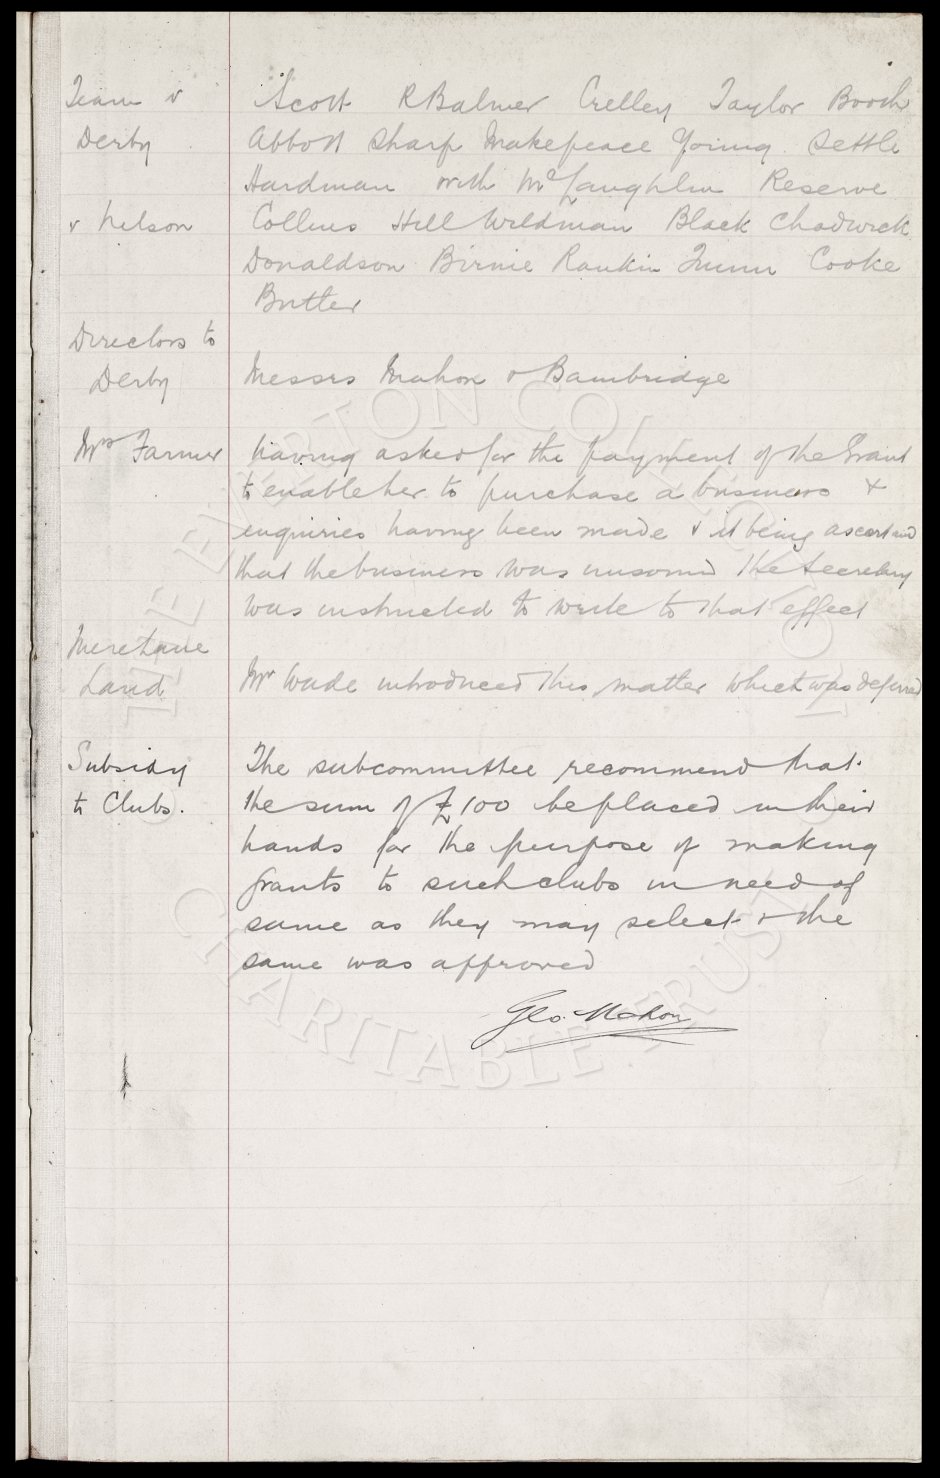 Team v
Scott R Balmer Crelley Taylor Booth
Derby
Abbott Sharp Makepeace Young Settle
Hardman with McLaughlin Reserve
v Nelson
Collins Hill Wildman Black Chadwick
Donaldson Birnie Rankin Quinn Cooke
Butler
Directors to
Derby
Messrs Mahon & Bainbridge
Mrs Farmer
having asked for the payment of the Grant
to enable her to purchase a business &
enquiries having been made & it being ascertained
that the business was unsound the Secretary
was instructed to write to that effect
Mere Lane
Land
Mr Wade introduced this matter which was deferred
Subsidy
The subcommittee recommend that
to Clubs.
the sum of £100 be placed in their
hands for the purpose of making
grants to such clubs in need of
same as they may select & the
same was approved
Geo. Mahon
THE EVERTON COLLECTION
CHARITABLE TRUST